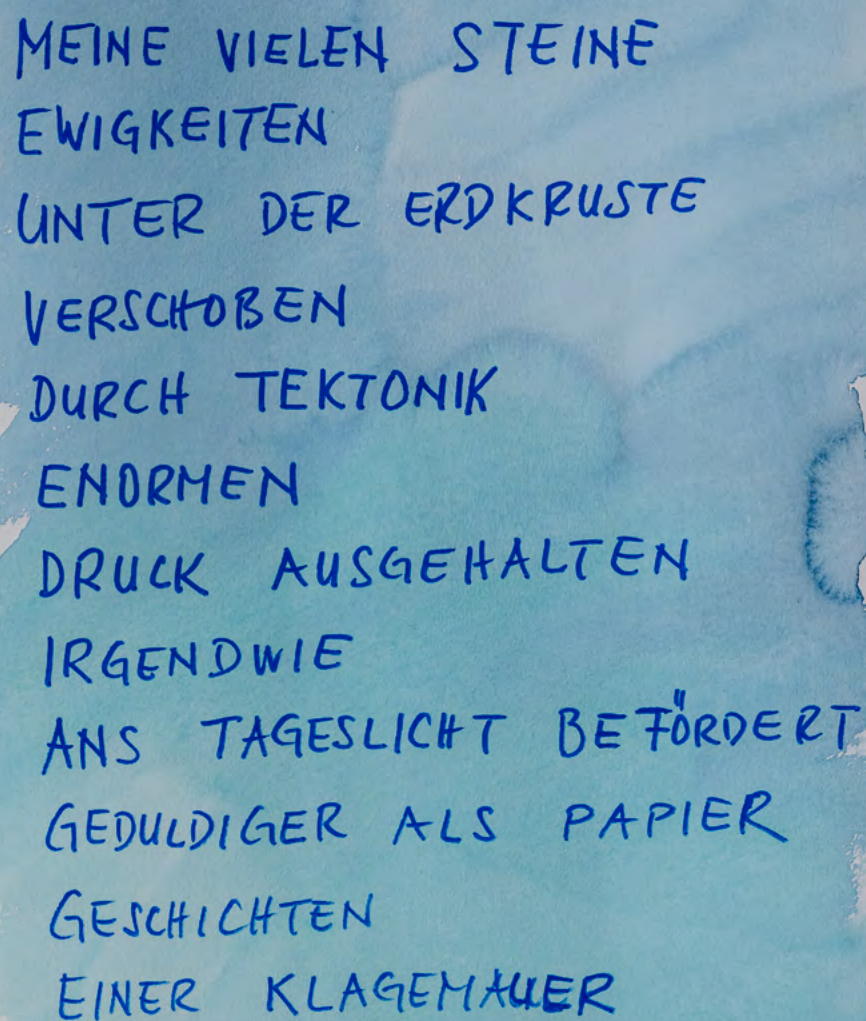 MEINE VIELEN STEINE
EWIGKEITEN
UNTER DER ERDKRUSTE
VERSCHOBEN
DURCH TEKTONIK
ENORMEN
DRUCK AUSGEHALTEN
IRGENDWIE
ANS TAGESLICHT BEFÖRDERT
GEDULDIGER ALS PAPIER
GESCHICHTEN
EINER KLAGEMAUER